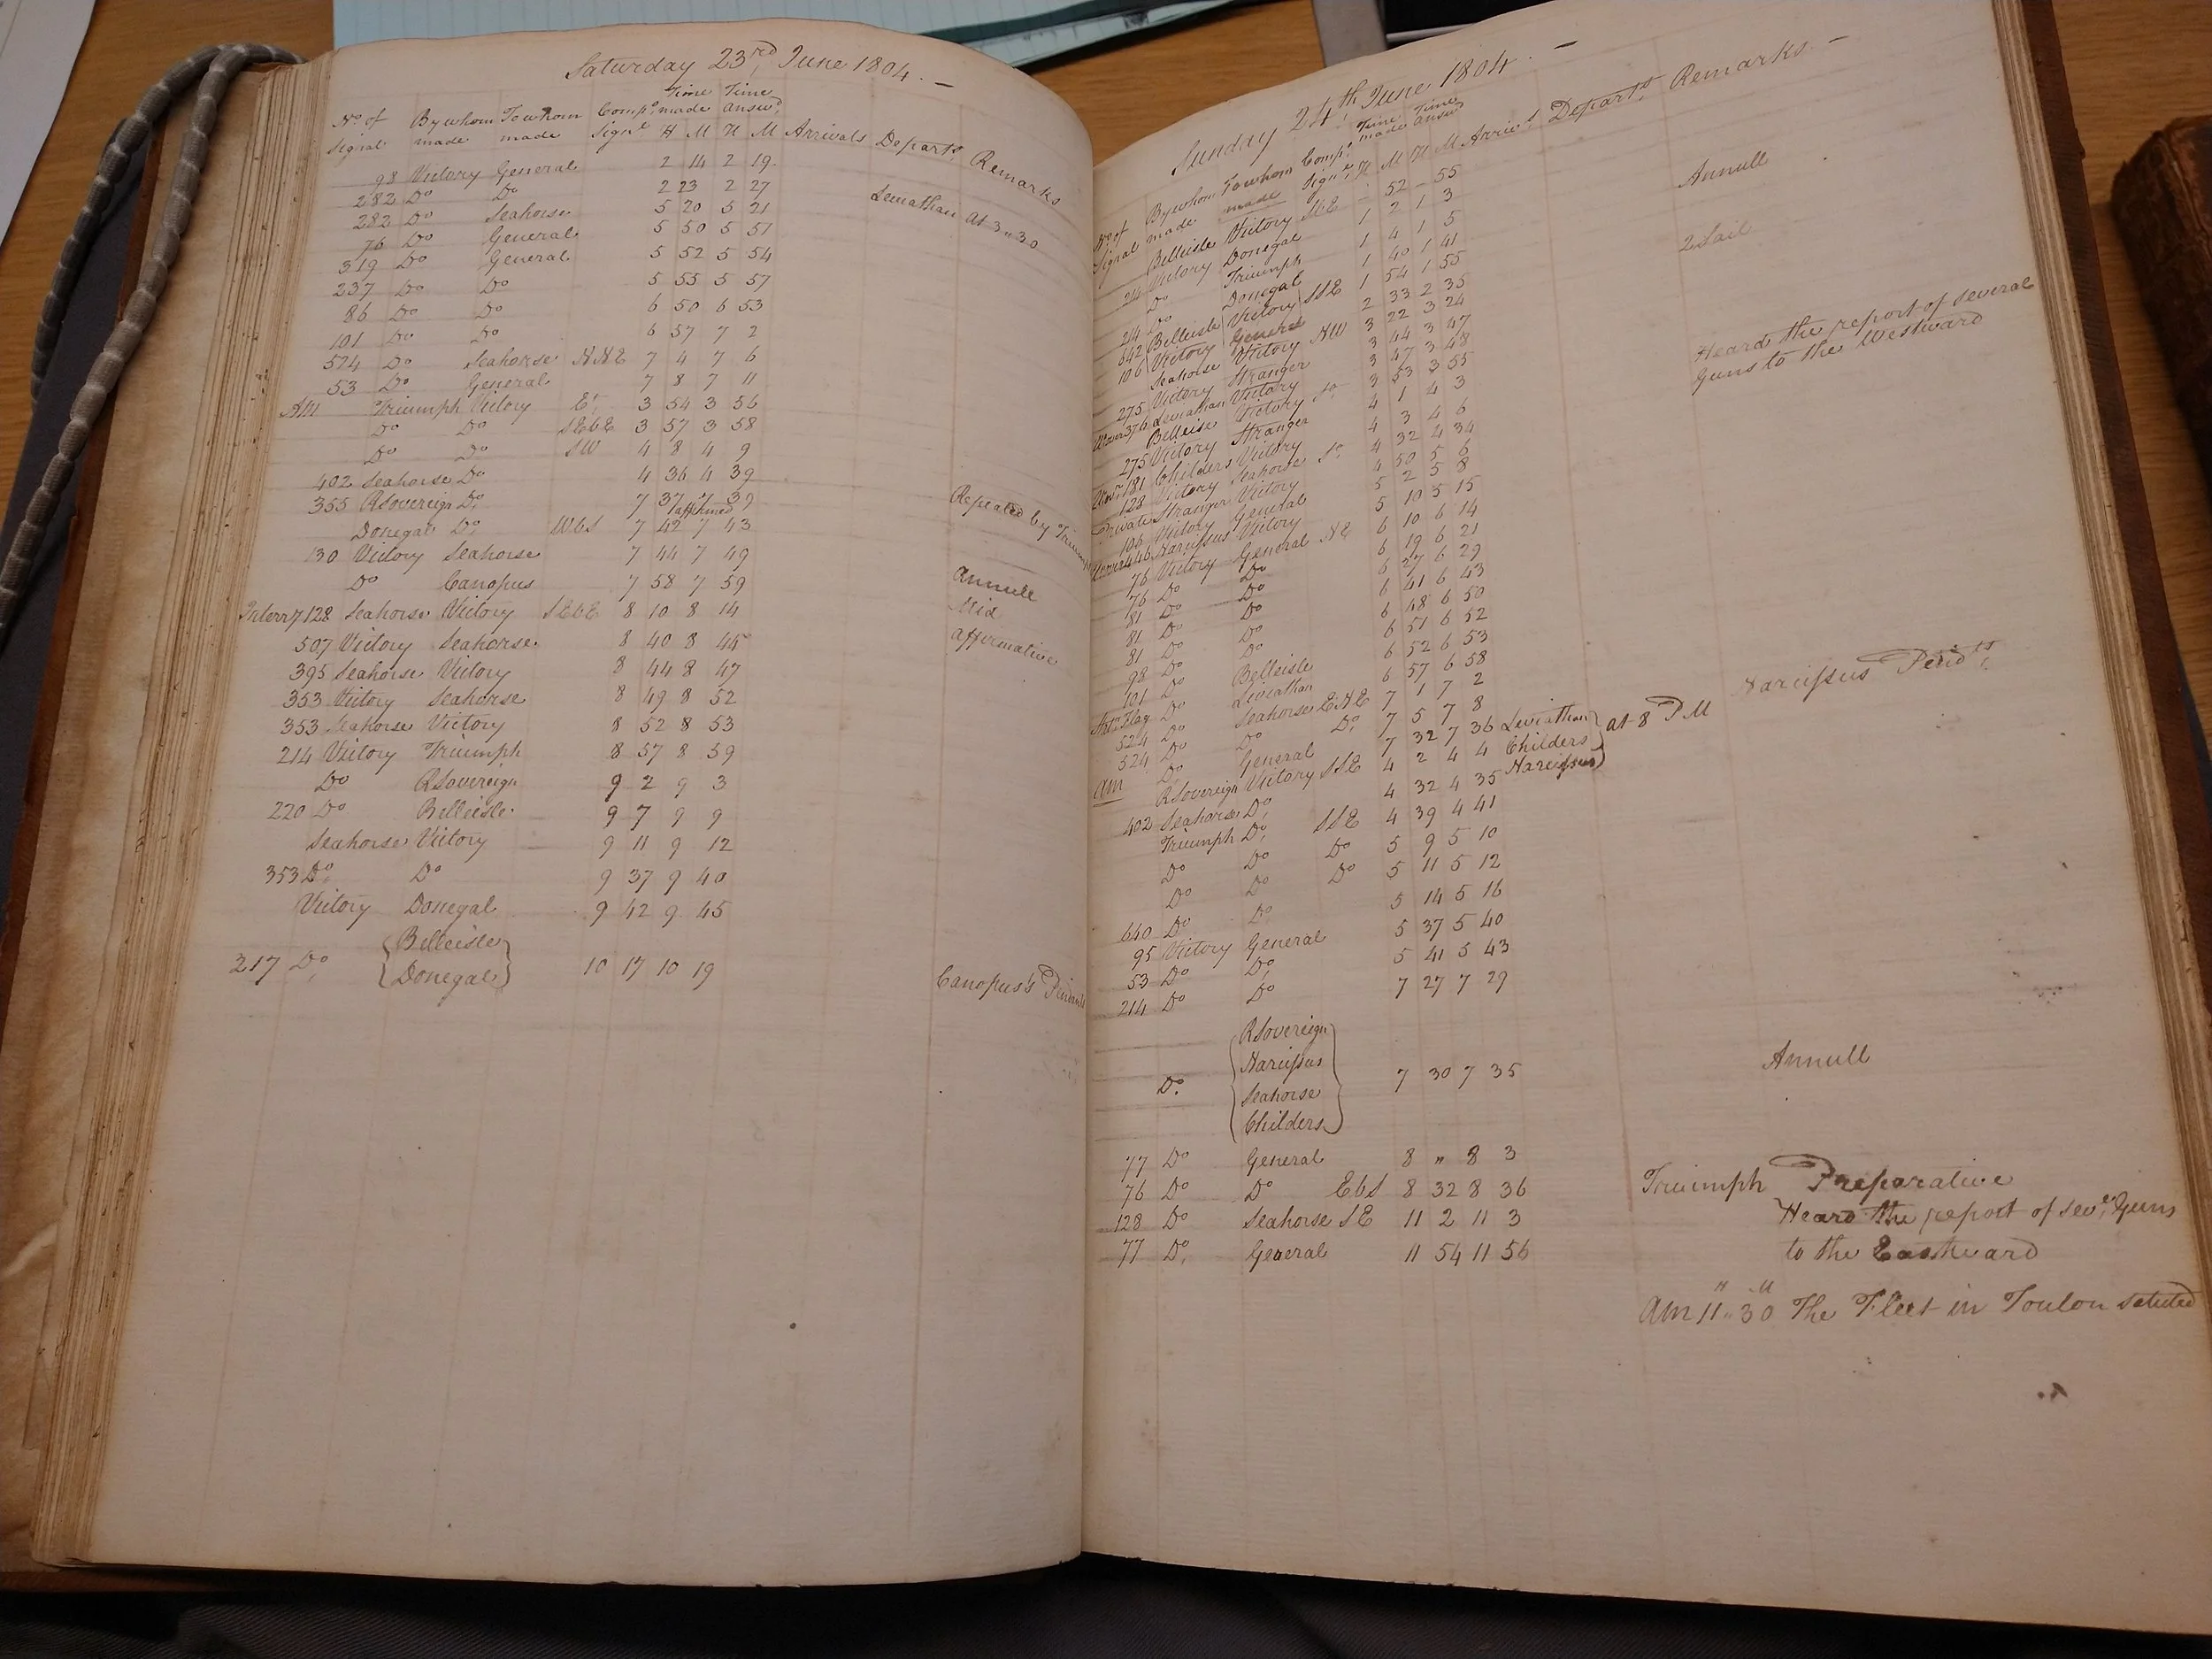 Saturday 23rd June 1804. —
No. of Signal By whom made To whom made Comps. Signl. Time made H M Time answd. H M Arrivals Departs. Remarks
98 Victory General 2 14 2 19
282 Do Do 2 23 2 27 Leviathan at 3 " 30
282 Do Seahorse 5 20 5 21
76 Do General 5 50 5 51
319 Do General 5 52 5 54
237 Do Do 5 55 5 57
86 Do Do 6 50 6 53
101 Do Do 6 57 7 2
524 Do Seahorse NNE 7 4 7 6
53 Do General 7 8 7 11
AM Triumph Victory Et. 3 54 3 56
Do Do SEbE 3 57 3 58
Do Do SW 4 8 4 9
402 Seahorse Do 4 36 4 39
355 RSovereign Do. 7 37 7 39 Repeated by
Donegal Do. WbS 7 42 7 43
130 Victory Seahorse 7 44 7 49
Do Canopus 7 58 7 59 Annull
Interry 128 Seahorse Victory SEbE 8 10 8 14
507 Victory Seahorse 8 40 8 45 affirmative
395 Seahorse Victory 8 44 8 47
353 Victory Seahorse 8 49 8 52
353 Seahorse Victory 8 52 8 53
214 Victory Triumph 8 57 8 59
Do RSovereign 9 2 9 3
220 Do Belleisle 9 7 9 9
Seahorse Victory 9 11 9 12
353 Do. Do 9 37 9 40
Victory Donegal 9 42 9 45
Belleisle
217 Do. Donegal 10 17 10 19 Canopus's
Sunday 24th June 1804. —
No of Signal By whom made To whom made Comps. Signl. Time made H M Time answd H M Arrivs. Departs. Remarks —
Belleisle Victory - 52 - 55
214 Victory Donegal 1 2 1 3 Annull
Do Triumph 1 4 1 5
214 Do Donegal 1 40 1 41
642 Belleisle Victory SSE 1 54 1 55 2 Sail
106 Victory General 2 33 2 35
Seahorse Victory NW 3 22 3 24
275 Victory Stranger 3 44 3 47
376 Leviathan Victory 3 47 3 48 Heard the report of several
Belleisle Victory 3 53 3 55 Guns to the Westward
275 Victory Stranger 4 1 4 3
181 Childers Victory 4 3 4 6
128 Victory Seahorse 4 32 4 34
Private Stranger Victory 4 50 5 6
106 Victory General 5 2 5 8
446 Narcissus Victory 5 10 5 15
76 Victory General NE 6 10 6 14
76 Do Do 6 19 6 21
81 Do Do 6 27 6 29
81 Do Do 6 41 6 43
81 Do Do 6 48 6 50
98 Do Belleisle 6 51 6 52
101 Do Leviathan 6 52 6 53
Do Seahorse ENE 6 57 6 58
524 Do Do Do. 7 1 7 2 Narcissus
524 Do General 7 5 7 8
Do. 7 32 7 36 Leviathan
am RSovereign Victory SSE 4 2 4 4 Childers at 8 PM
402 Seahorse Do. 4 32 4 35 Narcissus
Triumph Do. SSE 4 39 4 41
Do Do Do 5 9 5 10
Do Do Do 5 11 5 12
640 Do Do. 5 14 5 16
95 Victory General 5 37 5 40
53 Do Do. 5 41 5 43
214 Do Do 7 27 7 29
RSovereign
Narcissus
Do. 7 30 7 35 Annull
Seahorse
Childers
77 Do General 8 " 8 3
76 Do Do EbS 8 32 8 36 Triumph Preparative
128 Do Seahorse SE 11 2 11 3 Heard the report of sevl. Guns
77 Do. General 11 54 11 56 to the Eastward
AM 11 " 30 The Fleet in Toulon saluted